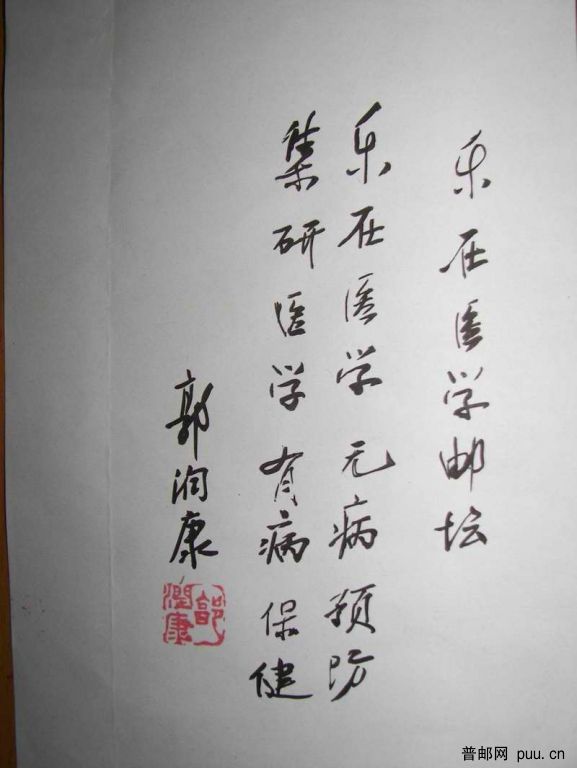 乐在医学邮坛
乐在医学 无病预防
集研医学 有病保健
郭润康
郭潤康
普邮网 puu.cn